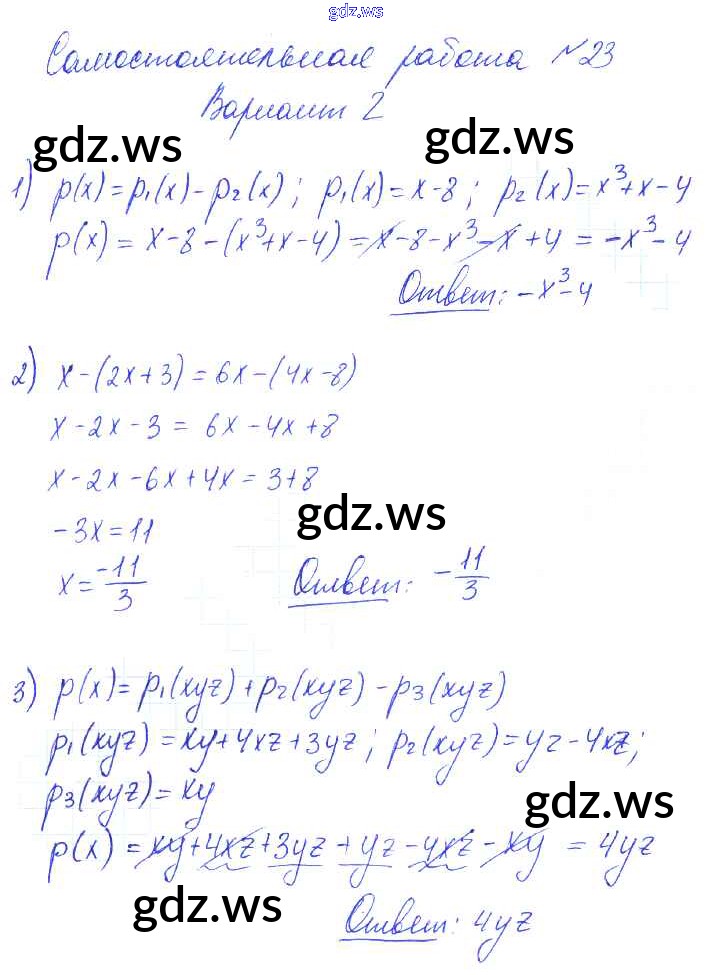 gdz.ws
Самостоятельная работа №23
Вариант 2
gdz.ws
gdz.ws
1) p(x) = p₁(x) - p₂(x); p₁(x) = x - 8; p₂(x) = x³ + x - 4
p(x) = x - 8 - (x³ + x - 4) = x - 8 - x³ - x + 4 = -x³ - 4
Ответ: -x³ - 4
2) x - (2x + 3) = 6x - (4x - 8)
x - 2x - 3 = 6x - 4x + 8
x - 2x - 6x + 4x = 3 + 8
gdz.ws
-3x = 11
x = -11/3 Ответ: -11/3
3) p(x) = p₁(xyz) + p₂(xyz) - p₃(xyz)
p₁(xyz) = xy + 4xz + 3yz; p₂(xyz) = yz - 4xz;
p₃(xyz) = xy
gdz.ws
p(x) = xy + 4xz + 3yz + yz - 4xz - xy = 4yz
gdz.ws
Ответ: 4yz